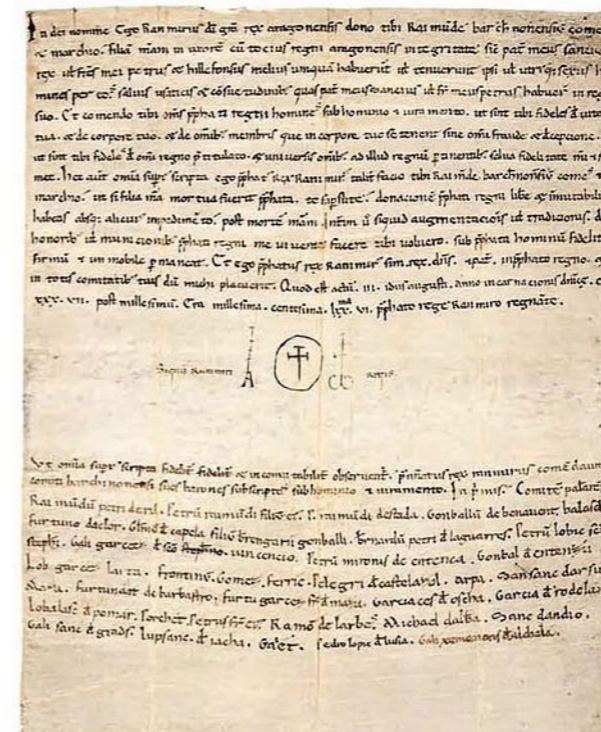 In dei nomine. Ego Ranimirus di gra rex aragonensis dono tibi Raimunde barchnonensiu come
& marchio. filia mam in uxore cu tocius regni aragonensis integritate sic pat meus sancius
rex ut fres mei petrus & hillefonsus melius unquam habuerut ut tenuerunt ipsi ut utriusq; sexus ho
mines per eos saluis usaticis & cosuetudinib quas pat meus sancius ut fr meus petrus habuer in reg
suo. Et comendo tibi oms pphati regni homines sub hominio & iuramento. ut sint tibi fideles d uita
tua. & de corpore tuo. & de omib membris que in corpore tuo se tenent sine omi fraude & decepcione.
ut sint tibi fideles d omi regno ptitulato. & uniuersis omib ad illud regnu ptinentib. salua fidelitate m
met. Hec aut omia supr scripta ego pphat rex Ranimir talit facio tibi Raimde. barchnonsiu come &
marchio. ut si filia ma mortua fuerit pphata. te supstite. donacione pphati regni libe & inmutabili
habeas absq; alicui impedimeto. post morte mam. Intim u siquid augmentaciois ut tradicionis. d
honorib ut municionib pphati regni me uiuente facere tibi uoluero. sub pphata hominu fidelit
firmu & inmobile pmaneat. Et ego pphatus rex Ranimir sim rex. dns. & pat. in pphato regno. &
in totis comitatib tuis du michi placuerit. Quod est actu. iii. idus augusti. anno incarnacionis dnice. c
xxx. vii. post millesimu. Era millesima. centesima. lxx. v. pphato rege Ranimiro regnate.
Signu Ranimiri A regis.
Ut omia supr scripta fidelit fidelit & incomutabilit obseruent. pnnatus rex ranimirus comedauit
comiti barchinonensi suos barones subscriptos sub hominio & iuramento. In pmis. Comite palare
Raimudu petri deril. Petru raimudi filiu ei. P. raimudi destada. Gonballu de benauent. balasch
furtuno daclor. d capela filiu brengarii gonballi. brnardu petri d laguarres. Petru lobic
stephi. Gali garces d sco uincencio. Petru mironis de entenca. Gonbal d entenca
Lob garces. frontinu. Gomes. ferric. Pelegri d castelazol. arpa. Sansanc darsu
Mara. furtunat de barbastro. furtu garces fr d mara. Garcia ces d oscha. Garcia d rodela
d pomar. Porchet. Petrus fr ei. Ramo de larbe. Michael dalba. Sanc dandio.
Gali sanc d grads. Lupsanc. d iacha. Galet. Pedro lopic d lusia. Gali xemenons d alchala.